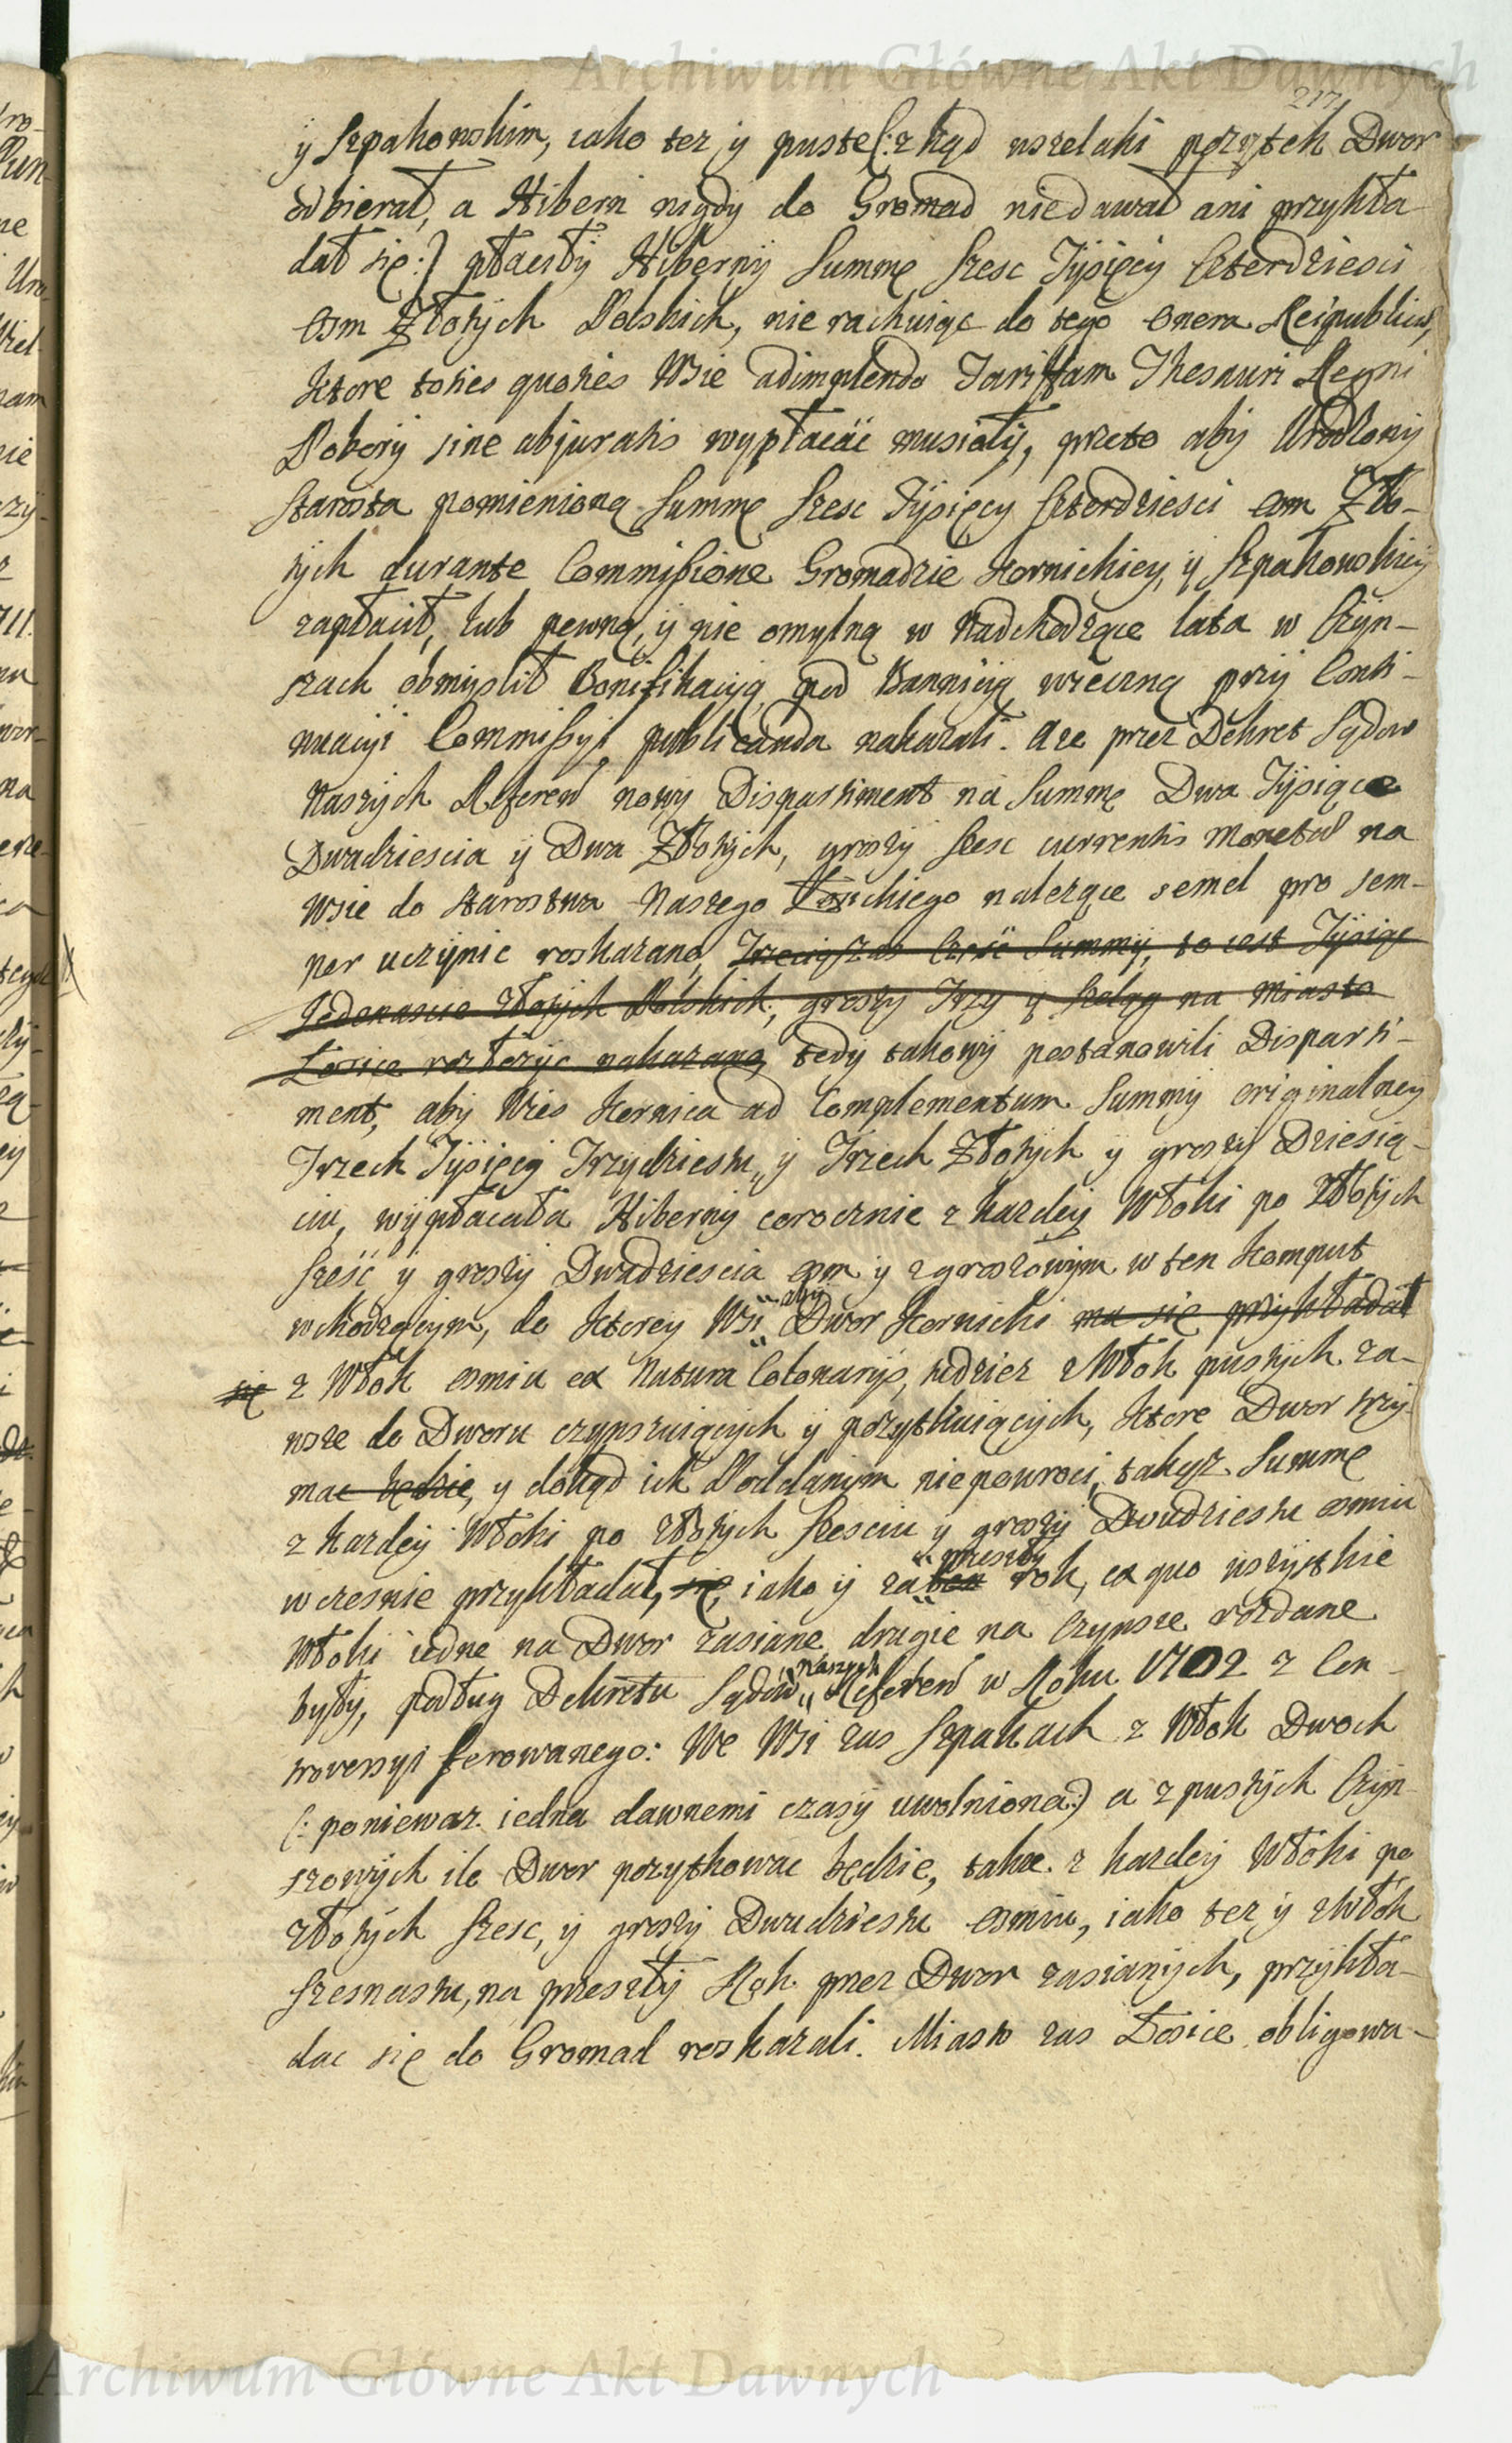 Archiwum Główne Akt Dawnych
217
ÿ Szpakowskim, iako tez ÿ puste (: zkąd wszelaki pozÿtek Dwor
odbierał, a Hibern nigdÿ do Gromad niedawał ani przykła
dał się :) płaciłÿ Hibernÿ Summę Szesc Tÿsięcÿ Czterdziesci
Osm Złotÿch Polskich, nie rachuiąc do tego Onera Reipublicæ,
Ktore toties quoties Wsie adimplendo Tariffam Thesauri Regni
Poborÿ sine abjuratis wypłacać musiałÿ, przeto abÿ Urodzonÿ
Starosta pomienioną Summę Szesc Tÿsięcy Czterdziesci osm Zło-
tÿch durante Commissione Gromadzie Kornickieÿ, ÿ Szpakowskieÿ
zapłacił, lub pewną, ÿ nie omylną w Nadchodzące lata w Czÿn-
szach obmyslił Bonifikacÿą pod Bannicÿą wieczną przÿ Conti-
nuacÿi Commissÿi publicanda nakazali. Aze przez Dekret Sądow
Naszÿch Referen nowÿ Dispartiment na Summę Dwa Tÿsiące
Dwadziescia ÿ Dwa Złotÿch, groszÿ szesc currentis Monetæ na
Wsie do Starostwa Naszego Łosickiego nalezące semel pro sem-
per uczÿnic roskazano, Trzecią zas Częsc Summÿ, to iest Tÿsiąc
Jedenascie złotÿch Polskich, groszÿ Trzy ÿ Szeląg na Miasto
Łosice rozłozÿc nakazano, tedÿ takowÿ postanowili Disparti-
ment, abÿ Wies Kornica ad Complementum Summÿ originalneÿ
Trzech Tÿsięcÿ Trzydziestu, ÿ Trzech Złotÿch ÿ groszÿ Dziesią-
ciu, wÿpłacała Hibernÿ corocznie z kazdeÿ Włoki po Złotÿch
szesć ÿ groszÿ Dwadziescia osm ÿ zgroszowÿm w ten Komput
wchodzącÿm, do Ktorey Wsi abÿ Dwor Kornicki ma się przÿkładał
się z Włok osmiu ex Natura Colonarÿs, tudziez z Włok pustÿch za-
wsze do Dworu czynszuiącÿch ÿ pozytkuiącÿch, Ktore Dwor trzÿ-
mac będzie, y dokąd ich Poddanÿm niepowroci, takąz Summę
z kazdeÿ Włoki po złotÿch szesciu ÿ groszÿ Dwudziestu osmiu
wczesnie przykładał, się, iako ÿ za ten przeszłÿ rok, ex quo wszÿstkie
Włoki iedne na Dwor zasiane drugie na Czynsze rozdane
bÿłÿ, podług Dekretu Sądów Naszych Referen w Roku 1702 z Con-
trowersyi ferowanego: We Wsi zas Szpakach z Włok Dwoch
(: poniewaz iedna dawnemi czasÿ uwolniona :) a z pustÿch Czÿn-
szowÿch ile Dwor pozytkowac będzie, takze z kazdeÿ Włoki po
złotÿch szesc, ÿ groszÿ Dwudziestu osmiu, iako tez ÿ z Włok
szesnastu, na przeszłÿ Rok przez Dwor zasianÿch, przÿkła-
dac się do Gromad roskazali. Miasto zas Łosice obligowa-
Archiwum Główne Akt Dawnych